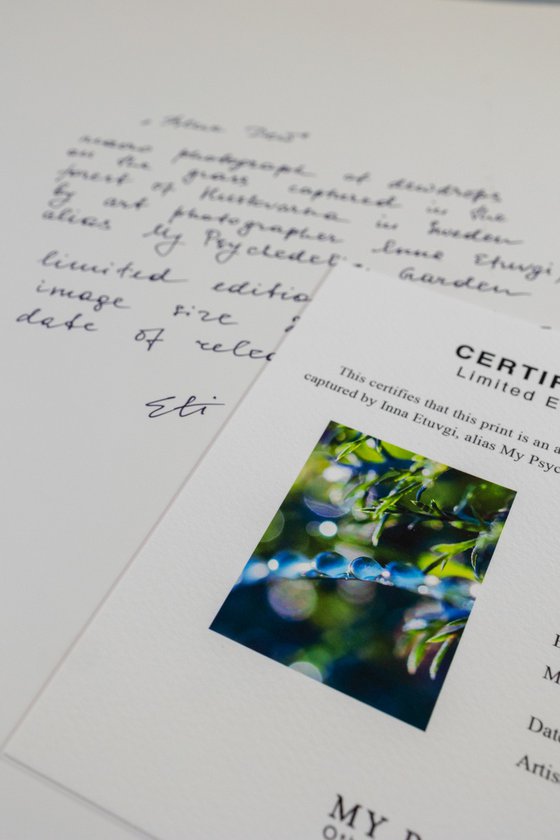 macro photograph of dewdrops
on the grass captured in the
forest of Huskvarna in Sweden
by art photographer Inna Etuvgi,
alias My Psychedelic Garden
limited editio
image size
date of relea
Eti
CERTIF
Limited E
This certifies that this print is an a
captured by Inna Etuvgi, alias My Psyc
E
M
Date
Artis
MY P